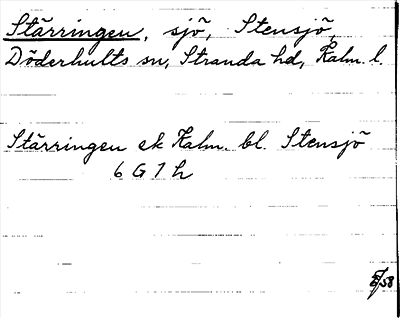 Stärringen, sjö, Stensjö,
Döderhults sn, Stranda hd, Kalm. l.
Stärringen ek Kalm. bl. Stensjö
6 G 1 h
/58